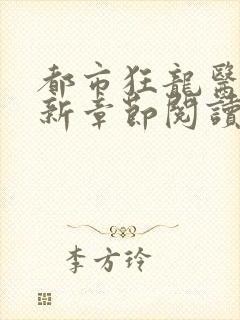 都市狂龍醫
新章節閱讀
李方玲